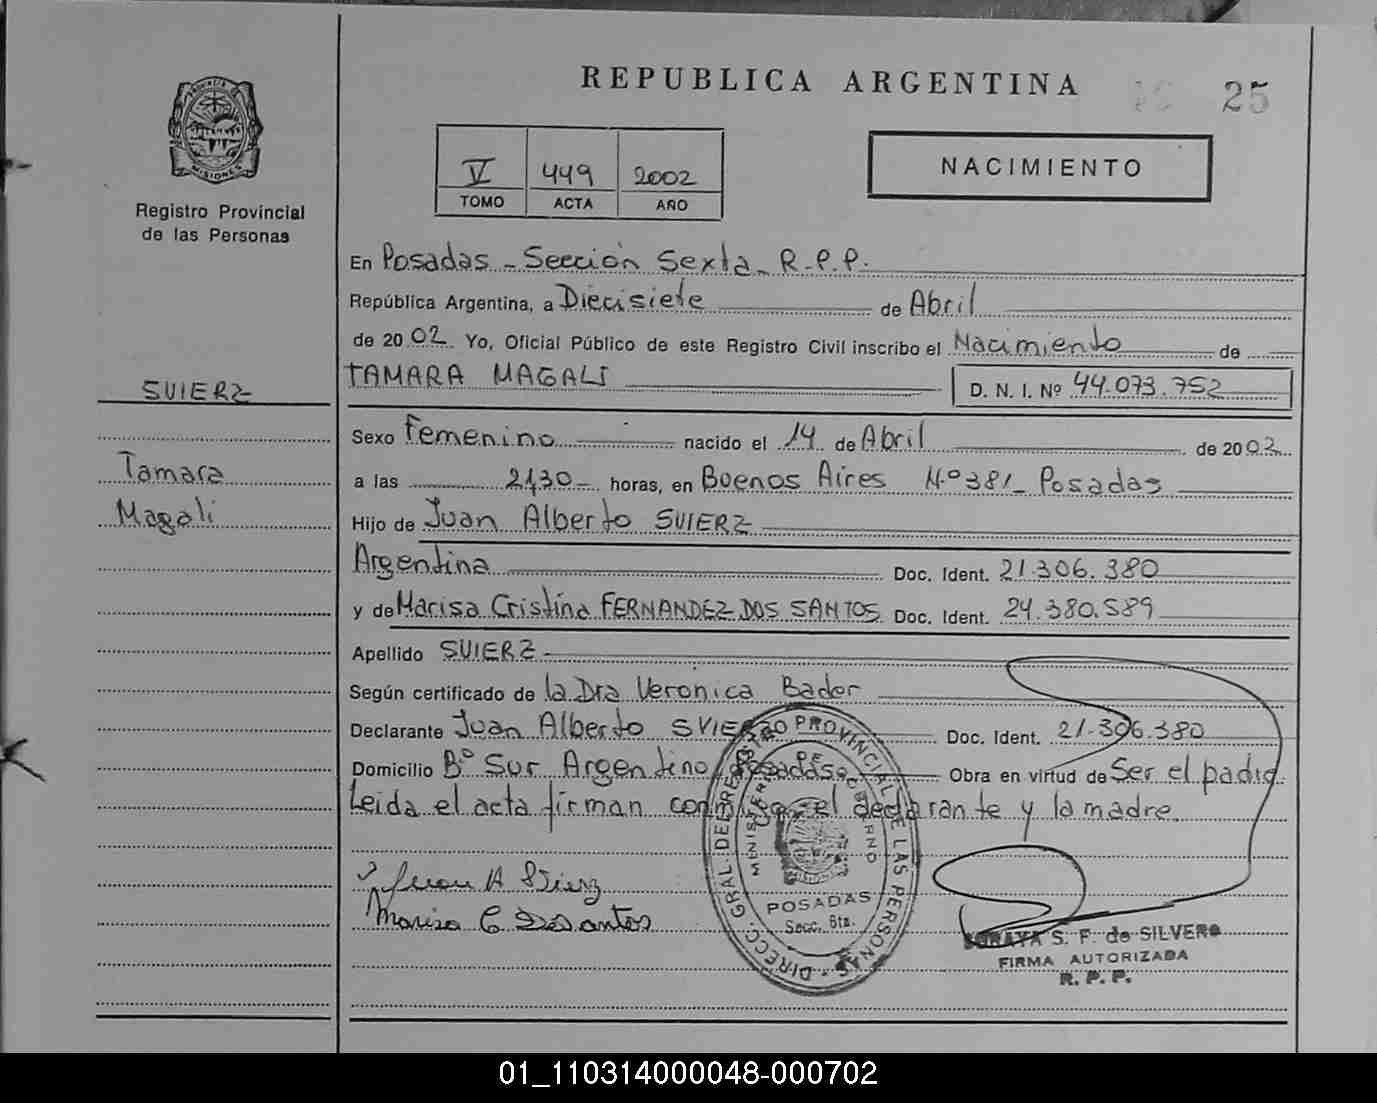 REPUBLICA ARGENTINA
25
NACIMIENTO
V 449 2002
TOMO ACTA AÑO
PROVINCIA DE MISIONES
Registro Provincial
de las Personas
SVIERZ
Tamara
Magali
En Posadas - Sección Sexta - R.P.P.
República Argentina, a Diecisiete de Abril
de 2002 Yo, Oficial Público de este Registro Civil inscribo el Nacimiento de
TAMARA MAGALI D. N. I. Nº 44.073.752
Sexo Femenino nacido el 14 de Abril de 2002
a las 21,30 horas, en Buenos Aires Nº 381 - Posadas
Hijo de Juan Alberto SVIERZ
Argentina Doc. Ident. 21.306.380
y de Marisa Cristina FERNANDEZ DOS SANTOS Doc. Ident. 24.380.589
Apellido SVIERZ
Según certificado de la Dra Veronica Bader
Declarante Juan Alberto SVIERZ Doc. Ident. 21.306.380
Domicilio Bº Sur Argentino, Posadas Obra en virtud de Ser el padre
Leida el acta firman conmigo, el declarante y la madre.
Juan A Svierz
Marisa C. Dos Santos
DIRECC. GRAL. DEL REGISTRO PROVINCIAL DE LAS PERSONAS
MINISTERIO DE GOBIERNO
POSADAS
Secc. 6ta.
SORAYA S. F. de SILVERO
FIRMA AUTORIZADA
R. P. P.
01_110314000048-000702